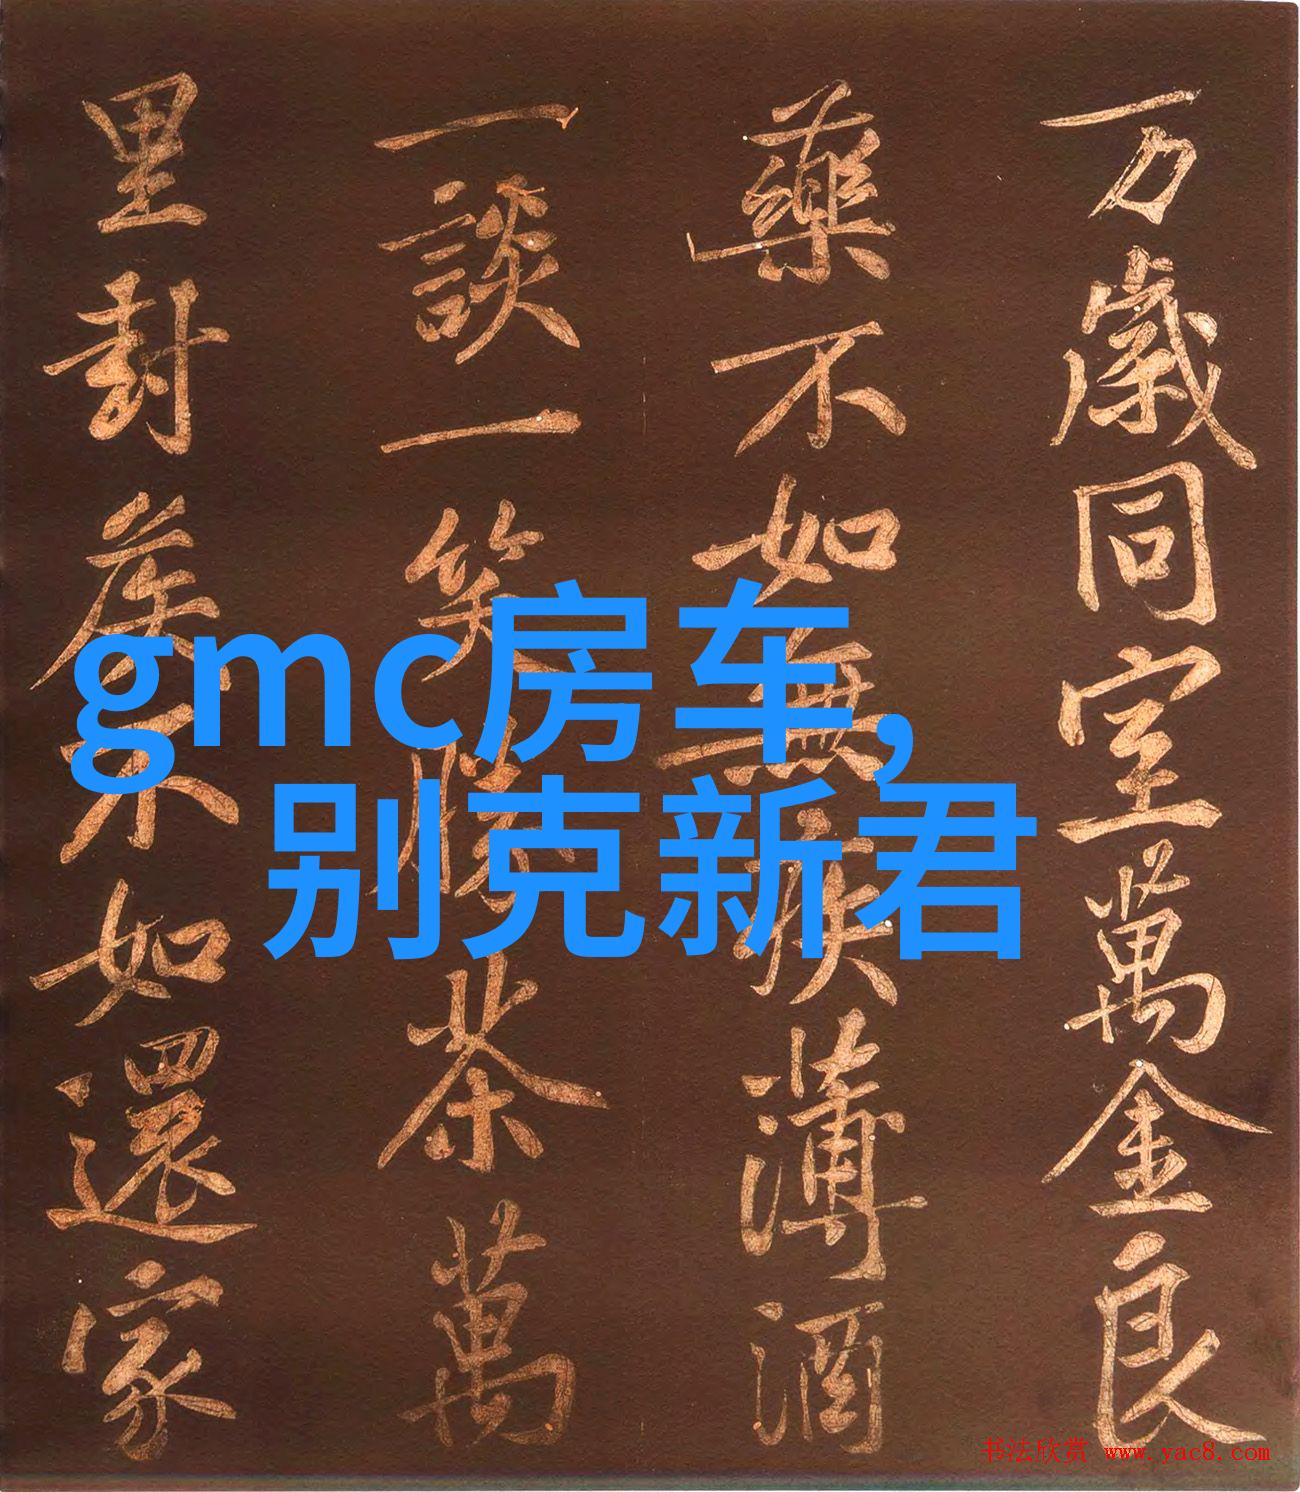 万歲同室萬金良
藥不如無疾薄酒
一談一笑勝茶萬
里封矦不如還家
gmc房车,
别克新君
书法欣赏 www.yac8.com